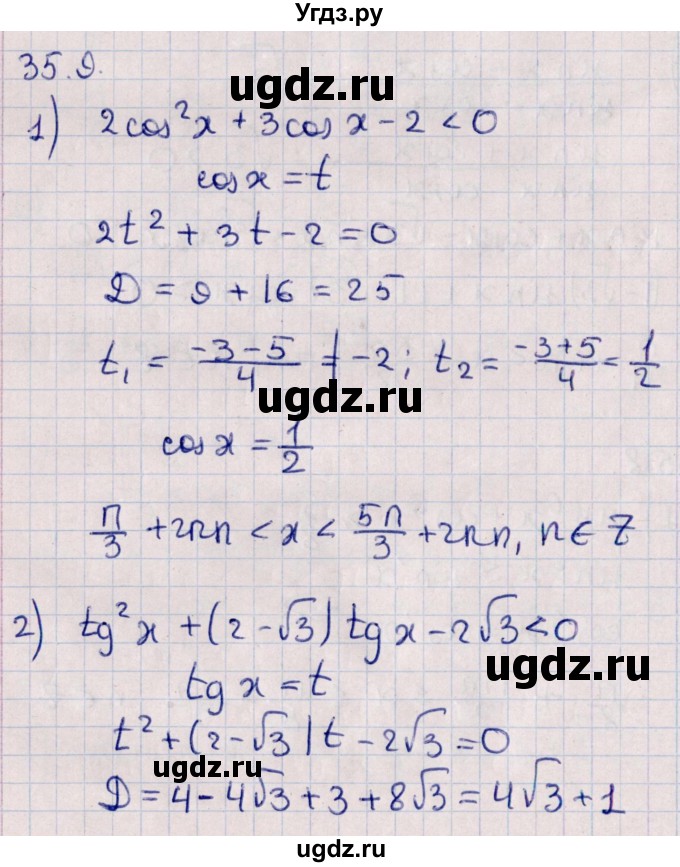 Угдз.ру
35.9.
ugdz.ru
1) 2cos²x + 3cos x - 2 < 0
cos x = t
2t² + 3t - 2 = 0
ugdz.ru
D = 9 + 16 = 25
t₁ = (-3-5)/4 = -2; t₂ = (-3+5)/4 = 1/2
ugdz.ru
cos x = 1/2
π/3 + 2πn < x < 5π/3 + 2πn, n ∈ Z
2) tg²x + (2 - √3) tg x - 2√3 < 0
ugdz.ru
tg x = t
t² + (2 - √3) t - 2√3 = 0
ugdz.ru
D = 4 - 4√3 + 3 + 8√3 = 4√3 + 1
ugdz.ru